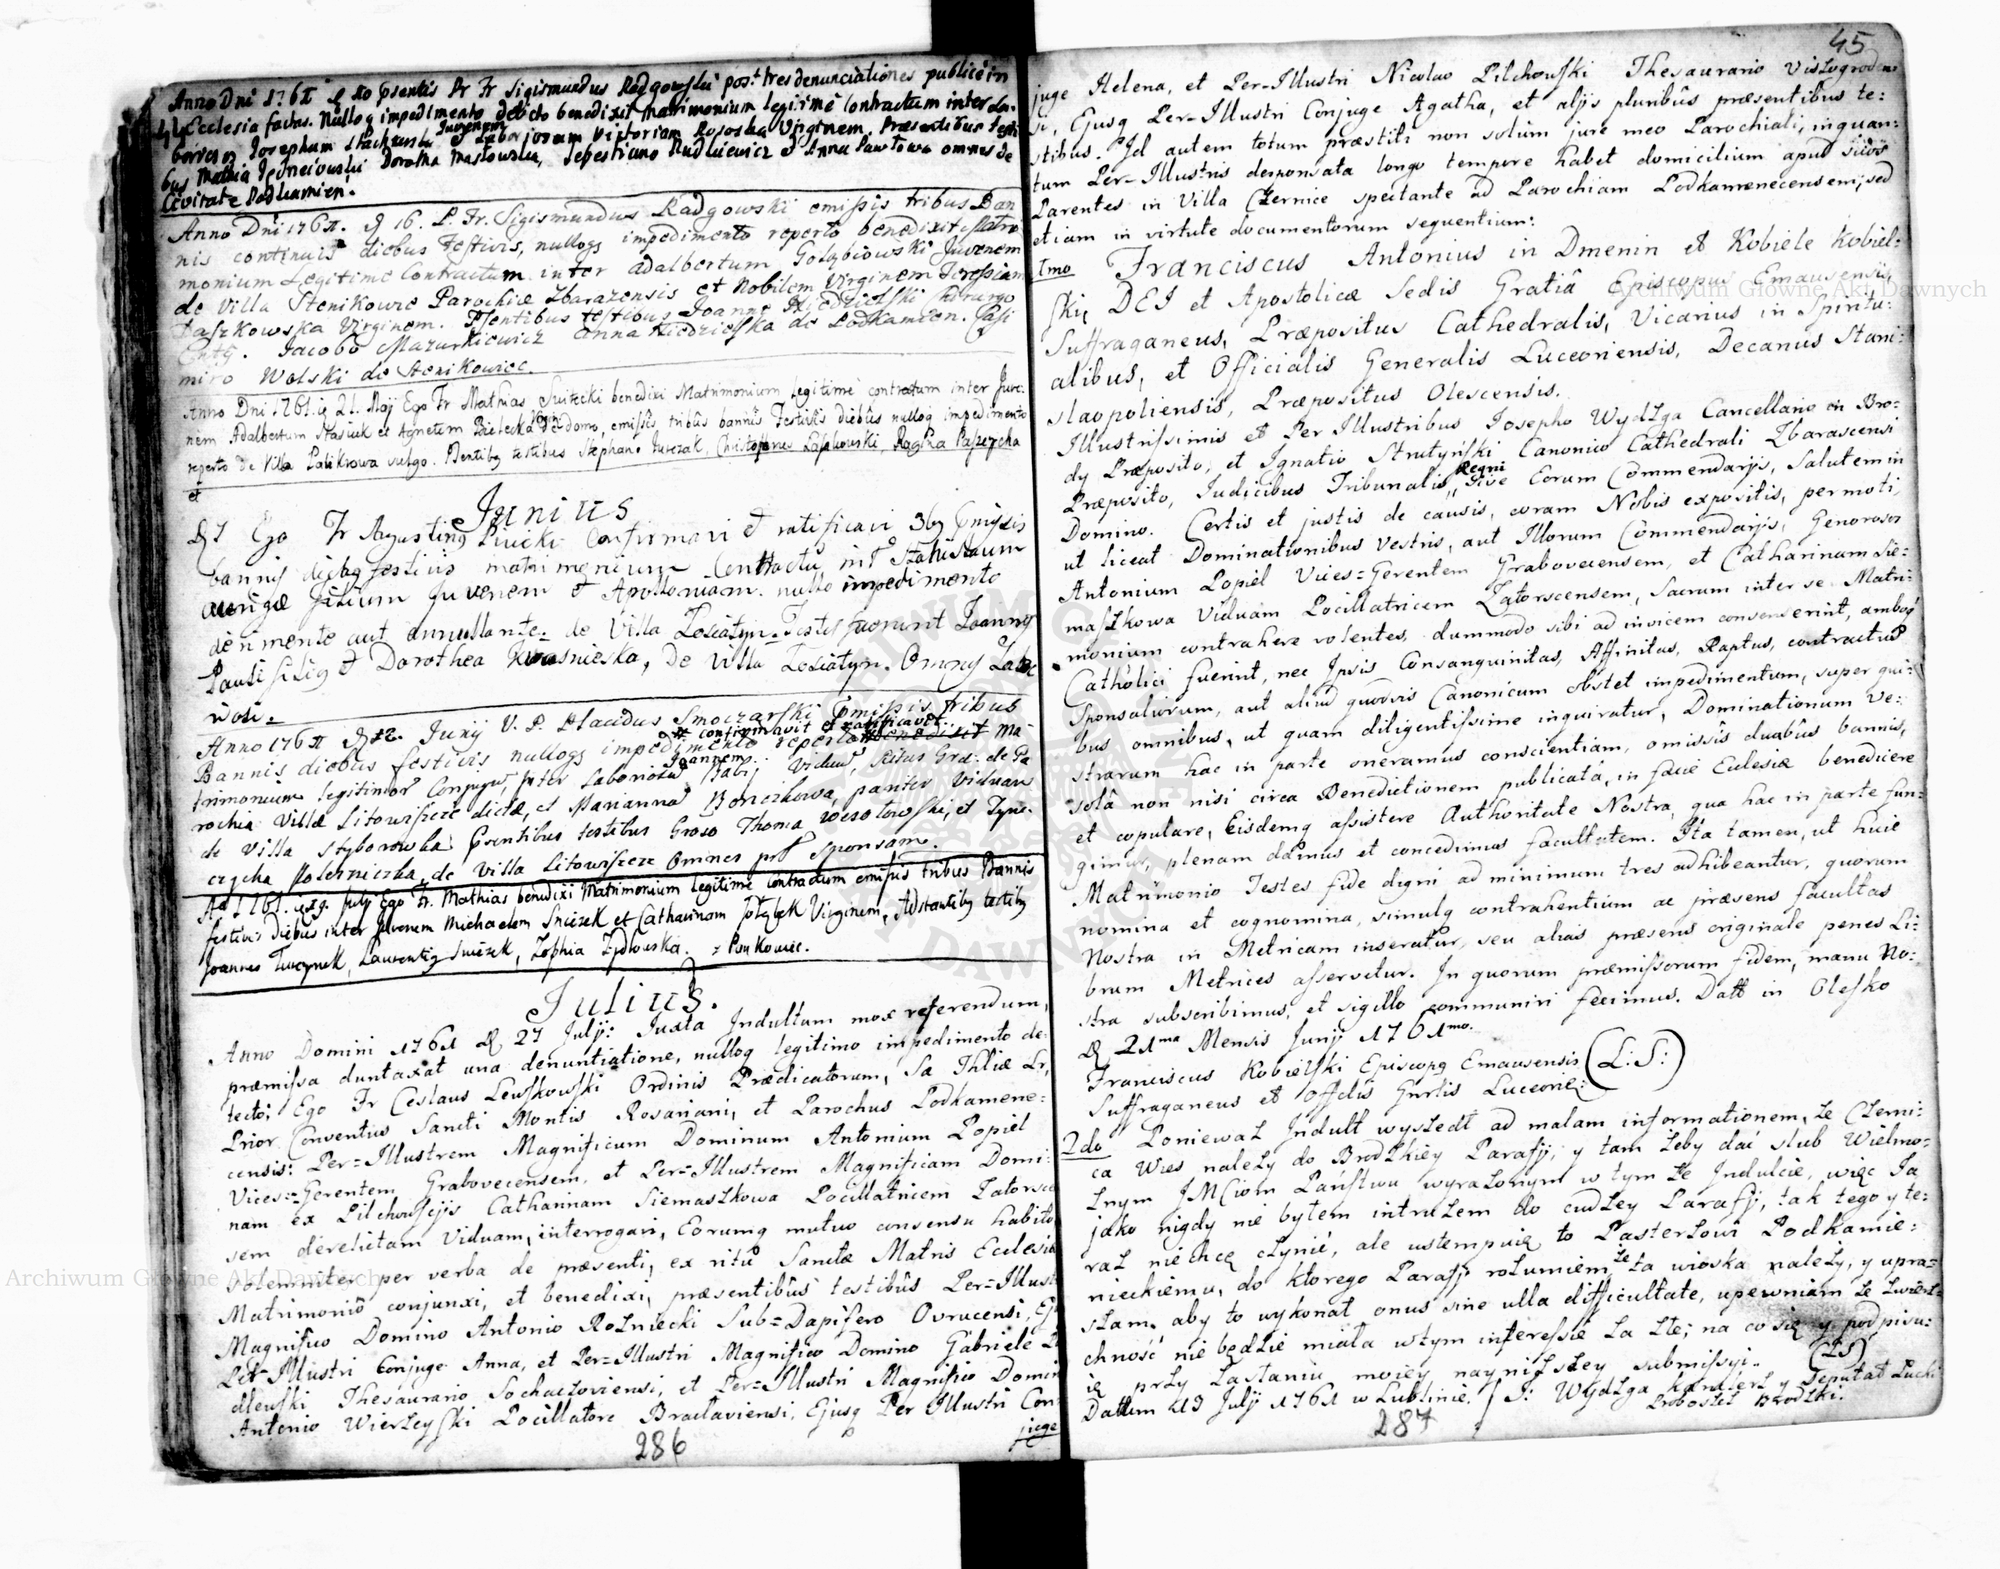 Anno Dni 1761 d 10 psentis Pr Fr Sigismundus Radgowski post tres denunciationes publicè in
Ecclesia factas. Nulloq impedimento detecto benedixit Matrimonium legitimè Contractum inter La-
boriosos Josephum Juvenem et Laboriosam Victoriam Virginem. Præsentibus testi
bus Mathia Dorotha Masłowska, Sebestiano Rudkiewicz et Anna Pawłowa omnes de
Civitate Podkamien.
Anno Dni 1761. d 16. P. Fr. Sigismundus Radgowski emissis tribus Ban
nis continuis diebus Festivis, nulloq impedimento reperto benedixit Matri
monium Legitime Contractum inter Adalbertum Gołębiowski Juvenem
de Villa Stenikowie Parochiæ Zbarazensis et Nobilem Virginem Teressiam
Taszkowska Virginem. Psentibus testibus Joanne Chirurgo
Jacobo Mazurkiewicz Anna de Podkamien. Casi
miro Wolski de Stenikowiec.
Anno Dni 1761. d 21. Maij Ego Fr Mathias Swiżecki benedixi Matrimonium legitimè contractum inter Juve-
nem Adalbertum Stasiuk et Agnetem Virgin de domo, emissis tribûs bannis Festivis diebûs nulloq impedimento
reperto de Villa Palikrowa vulgo. Psentibq testibus Stephano Christophorus
et
Junius
d 7 Ego Fr Augustinq Confirmavi et ratificavi 3bq Emissis
bannis diebq festivis matrimonium Contractu int
aurigæ filium Juvenem et Apolloniam nullo impedimento
derimente aut annullante de Villa Testes fuerunt Joannes
Pauli filiq et Dorothea Kwasnieska, de Villa Omnes
Anno 1761 d 12. Junij V. P. Placidus Smoczarski Emissis tribus
Bannis diebus festivis nulloq impedimento reperto confirmavit et ratificavit benedixit Ma
trimonium legitimos Conjuges Inter Laboriosû Joannem Babij Viduû, Ritus Græ: de Pa
rochia Villæ Litowiszcze dictæ, et Mariannâ Bonczkowa, pariter Viduam
de Villa Styborowka Psentibus testibus Groso Thoma Wesołowski, et Tyme-
czycha de Villa Litowiszcze Omnes prt Sponsam.
Ao 1761. Julij Ego Fr. Mathias benedixi Matrimonium legitime contractum emissis tribus Bannis
festivis Diebus inter Juvenem Michaelem Sniezek et Catharinam Virginem, Adstantibq testibq
Joannes Laurentiq Sniezek, Zophia Zydowska. z Penkowic.
Julius.
Anno Domini 1761 d 27 Julij: Juxta Indultum mox referendum,
præmissa duntaxat una denuntiatione, nulloq legitimo impedimento de-
tecto; Ego Fr Ceslaus Lewszkowski Ordinis Prædicatorum, Sæ Thliæ Lr,
Prior Conventus Sancti Montis Rosariani, et Parochus Podkamene-
censis: Per=Illustrem Magnificum Dominum Antonium Popiel
Vices=Gerentem Grabovecensem, et Per=Illustrem Magnificam Domi-
nam ex Pilchowscijs Catharinam Siemaszkowa Pocillatricem Zatorsce
sem derelictam Viduam, interrogavi, Eorumq mutuo consensu habito
solemniter per verba de præsenti, ex ritû Sanctæ Matris Ecclesiæ
Matrimoniô conjunxi, et benedixi, præsentibûs testibûs Per=Illust
Magnifico Domino Antonio Rożniecki Sub=Dapifero Ovrucensi, Ej
Per=Illustri Conjuge Anna, et Per=Illustri Magnifico Domino Gabriele
dlewski Thesaurario Sochaczoviensi, et Per=Illustri Magnifico Domin
Antonio Wierzeyski Pocillatore Bracłaviensi, Ejusq Per Illustri Con
juge
286
45
juge Helena, et Per-Illustri Nicolao Pilchowski Thesaurario Viszogrodens
si, Ejusq Per-Illustri Conjuge Agatha, et alijs pluribûs præsentibus te:
stibus. Id autem totum præstiti non solùm jure meo Parochiali, inquan:
tum Per-Illustris desponsata longo tempore habet domicilium apud suos
Parentes in Villa Czernice spectante ad Parochiam Podkamenecensem, sed
etiam in virtute documentorum sequentium:
1mo Franciscus Antonius in Dmenin et Kobiele Kobiel-
ski, DEI et Apostolicæ Sedis Gratiâ Episcopus Emausensis,
Suffraganeus, Præpositus Cathedralis, Vicarius in Spiritu:
alibus, et Officialis Generalis Luceoriensis, Decanus Stani:
slaopoliensis, Præpositus Olescensis.
Illustrissimis et Per Illustribus Josepho Wydżga Cancellario et Bro-
dy Præposito, et Ignatio Strutyński Canonico Cathedrali Zbarascensi
Præposito, Judicibus Tribunalis Regni sive Eorum Commendarijs, Salutem in
Domino. Certis et justis de causis, coram Nobis expositis, permoti,
ut liceat Dominationibus Vestris, aut Illorum Commendarijs, Generosos
Antonium Popiel Vices=Gerentem Grabovecensem, et Catharinam Sie-
maszkowa Viduam Pocillatricem Zatorscensem, Sacrum inter se Matri-
monium contrahere volentes, dummodo sibi ad invicem consenserint, amboq
Catholici fuerint, nec Ipsis Consanguinitas, Affinitas, Raptus, contractus
Sponsaliorum, aut aliud quodvis Canonicum obstet impedimentum, super qui-
bus omnibus, ut quam diligentissime inquiratur, Dominationum Ve-
strarum hac in parte oneramus conscientiam, omissis duabûs bannis,
solâ non nisi circa Benedictionem publicatâ, in facie Eclesiæ benedicere
et copulare, Eisdemq assistere Authoritate Nostra, qua hac in parte fun-
gimur, plenam damus et concedimus facultatem. Ita tamen, ut huic
Matrimonio Testes fide digni ad minimum tres adhibeantur, quorum
nomina et cognomina, simulq contrahentium ac præsens facultas
Nostra in Metricam inseratur, seu alias præsens originale penes Li-
brum Metrices asservetur. In quorum præmissorum fidem, manu No-
stra subscribimus, et sigillo communiri fecimus. Datt in Olesko
d 21ma Mensis Junij 1761mo.
Franciscus Kobielski Episcopq Emausensis (L:S:)
Suffraganeus et Offclis Gnrlis Luceorie:
2do Ponieważ Indult wyszedł ad malam informationem, że Czerni-
ca Wies należy do Brodzkiey Parafij, y tam żeby dać slub Wielmo-
żnym JMciom Państwu wyrażonym w tym że Indulcie, więc Ja
jako nigdy nie byłem intruzem do cudzey Parafij, tak tego y te-
raz niechcę czynić, ale ustempuię to Pasterzowi Podkamie-
nieckiemu, do ktorego Parafij rozumiem że ta wioska należy, y upra-
szam, aby to wykonał onus sine ulla difficultate, upewniam że Zwierz-
chność nie będzie miała wtym interessie za złe; na co się y podpisu-
ię przy Zastaniu moiey nayniższey submissyi. (LS)
Dattum 13 Julij 1761 w Lublinie. J: Wydżga Kanclerz y Deputat Łucki
Proboszcz Brodzki.
287
Archiwum Główne Akt Dawnych
Archiwum Główne Akt Dawnych